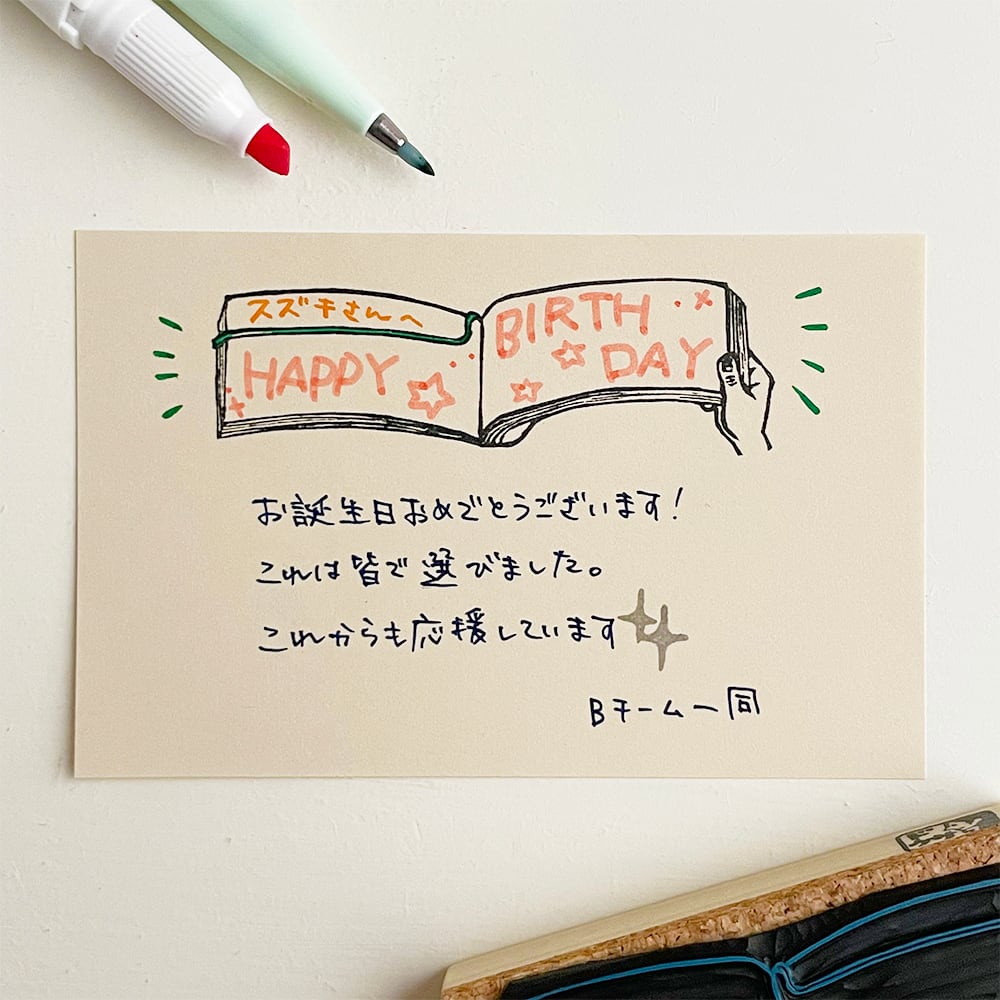 スズキさんへ
HAPPY
BIRTH
DAY
お誕生日おめでとうございます!
これは皆で選びました。
これからも応援しています
Bチーム一同